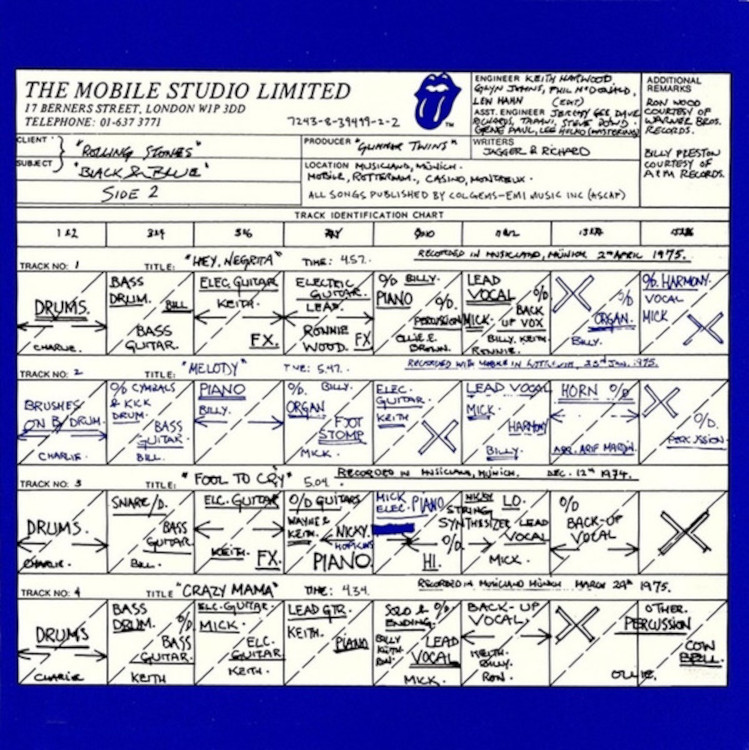 THE MOBILE STUDIO LIMITED
17 BERNERS STREET, LONDON W1P 3DD
TELEPHONE: 01-637 3771
7243-8-39499-2-2
TM
ENGINEER KEITH HARWOOD,
GLYN JOHNS, PHIL McDONALD,
LEW HAHN (EDIT)
ASST. ENGINEER JEREMY GEE, DAVE
RICHARDS, TAPANI, STEVE DOWD.
GENE PAUL, LEE HULKO (MASTERING)
ADDITIONAL
REMARKS
RON WOOD
COURTESY OF
WARNER BROS.
RECORDS.
BILLY PRESTON
COURTESY OF
A&M RECORDS.
CLIENT "ROLLING STONES"
SUBJECT "BLACK & BLUE"
SIDE 2
PRODUCER "GLIMMER TWINS"
WRITERS
JAGGER & RICHARD
LOCATION MUSICLAND, MÜNICH.
MOBILE, ROTTERDAM., CASINO, MONTREUX.
ALL SONGS PUBLISHED BY COLGEMS-EMI MUSIC INC (ASCAP)
TRACK IDENTIFICATION CHART
1&2 3&4 5&6
TRACK NO: 1 TITLE: "HEY, NEGRITA" TIME: 4.57. RECORDED IN MUSICLAND, MÜNICH 2nd APRIL 1975.
DRUMS.
CHARLIE.
BASS
DRUM. BILL
BASS
GUITAR.
ELEC. GUITAR
KEITH.
FX.
ELECTRIC
GUITAR.
LEAD.
RONNIE
WOOD. FX
O/D BILLY.
PIANO O/D.
PERCUSSION
OLLIE E.
BROWN.
LEAD
VOCAL O/D
MICK. BACK
UP VOX
BILLY. KEITH.
RONNIE.
O/D
ORGAN.
BILLY.
O/D. HARMONY.
VOCAL
MICK
TRACK NO: 2 "MELODY" TIME: 5.47. 23rd JAN. 1975.
BRUSHES
ON B/DRUM.
CHARLIE.
O/D CYMBALS
& KICK
DRUM.
BASS
GUITAR.
BILL.
PIANO
BILLY.
O/D. BILLY.
ORGAN
FOOT
STOMP
MICK.
ELEC.
GUITAR.
KEITH
LEAD VOCAL
MICK.
HARMONY
BILLY.
HORN O/D
ARR. ARIF MARDIN.
O/D.
PERCUSSION.
TRACK NO: 3 TITLE: "FOOL TO CRY" 5.04. RECORDED IN MUSICLAND, MÜNICH. DEC. 12th 1974.
DRUMS.
CHARLIE.
SNARE/D.
BASS
GUITAR.
BILL.
ELC. GUITAR
KEITH.
FX.
O/D GUITARS
WAYNE &
KEITH. NICKY.
HOPKINS
PIANO.
MICK PIANO
ELEC.
O/D
HI.
NICKY LO.
STRING
SYNTHESIZER LEAD
VOCAL
MICK.
O/D
BACK-UP
VOCAL
TRACK NO: 4 TITLE "CRAZY MAMA" TIME: 4.34. RECORDED IN MUSICLAND MÜNICH MARCH 29th 1975.
DRUMS
CHARLIE
BASS
DRUM. O/D
BASS
GUITAR.
KEITH
ELC. GUITAR.
MICK.
ELC.
GUITAR.
KEITH.
LEAD GTR.
KEITH.
PIANO
SOLO & O/D
ENDING.
BILLY
KEITH
RON. LEAD
VOCAL
MICK.
BACK-UP
VOCAL
KEITH
BILLY.
RON.
OTHER.
PERCUSSION
COW
BELL.
OLLIE.